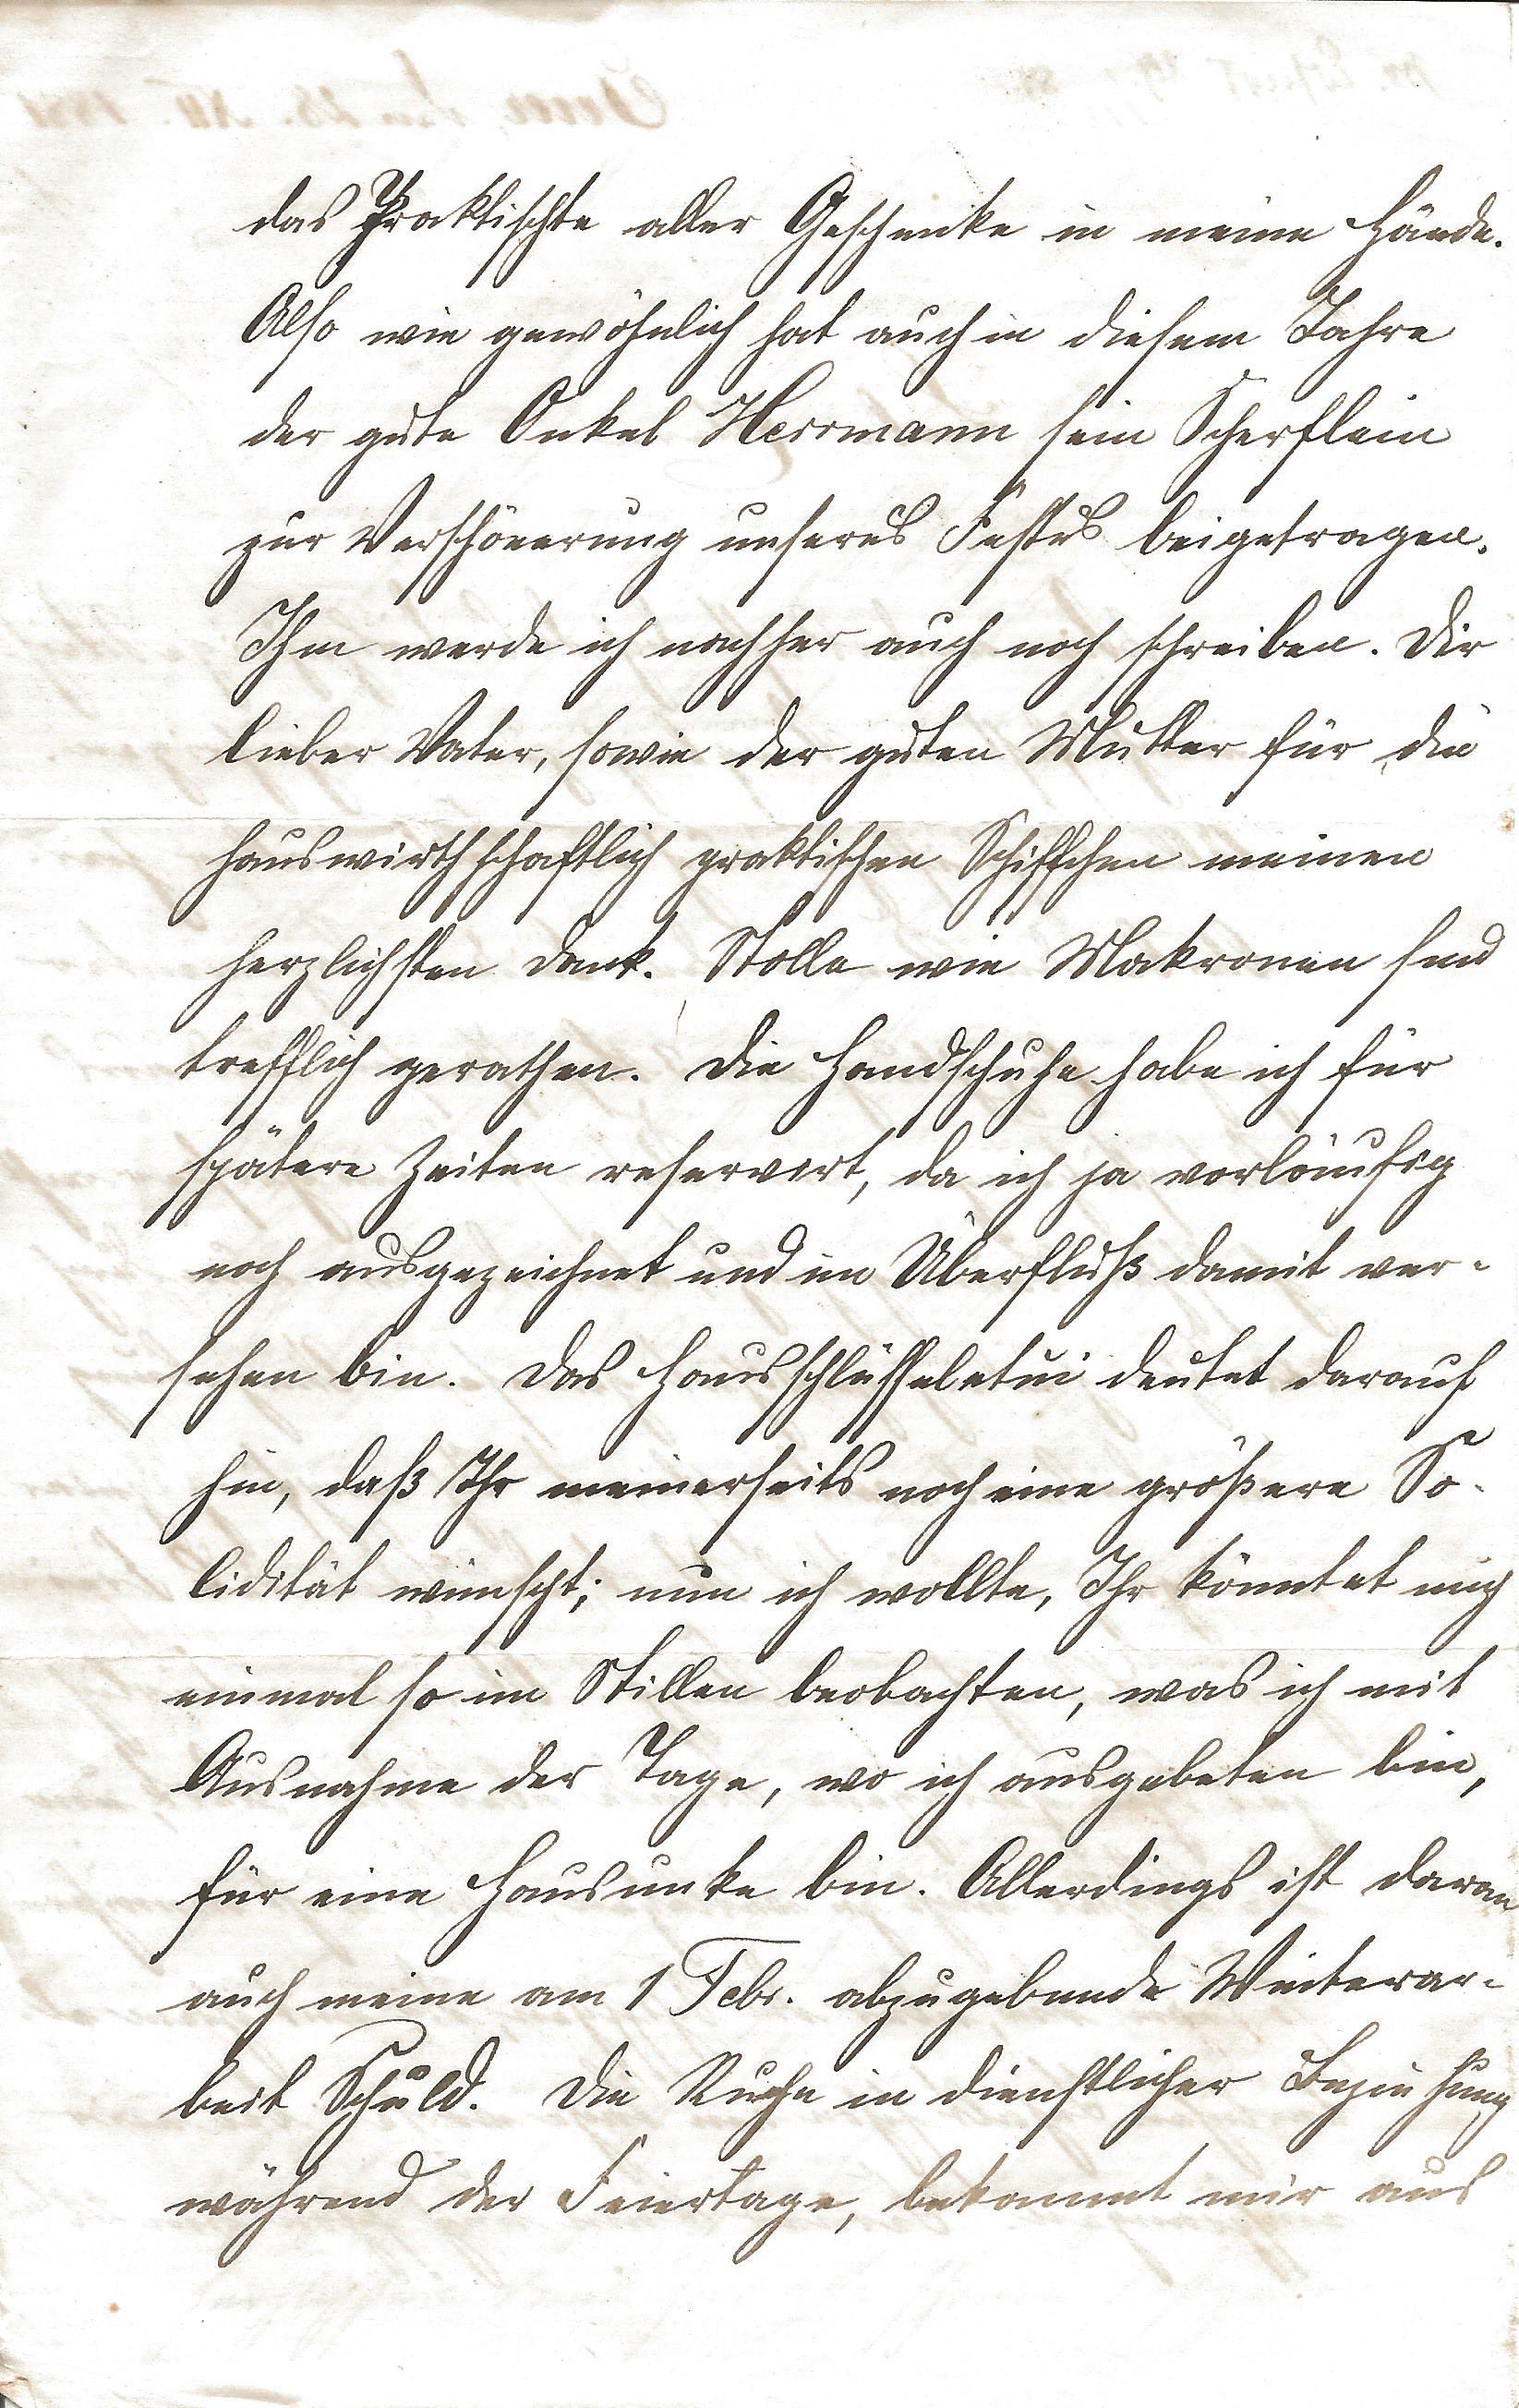 das Praktischte aller Geschenke in meine Hände.
Also wie gewöhnlich hat auch in diesem Jahre
der gute Onkel Herrmann sein Scherflein
zur Verschönerung unseres Festes beigetragen.
Ihm werde ich nachher auch noch schreiben. Dir
lieber Vater, sowie der guten Mutter für die
hauswirthschaftlich praktischen Schiffchen meinen
herzlichsten Dank. Stolle wie Makronen sind
trefflich gerathen. Die Handschuhe habe ich für
spätere Zeiten reservirt, da ich ja vorläufig
noch ausgezeichnet und im Überfluß damit ver-
sehen bin. Das Hausschlüsseletui deutet darauf
hin, daß Ihr meinerseits noch eine größere So-
lidität wünscht; nun ich wollte, Ihr könntet mich
einmal so im Stillen beobachten, was ich mit
Ausnahme der Tage, wo ich ausgebeten bin,
für eine Hausunke bin. Allerdings ist daran
auch meine am 1 Febr. abzugebende Winterar-
beit Schuld. Die Ruhe in dienstlicher Beziehung
während der Feiertage, bekommt mir aus